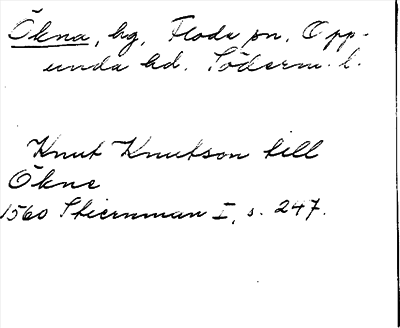 Ökna, hg, Floda sn, Opp-
unda hd. Söderm. l.
Knut Knutson till
Ökne
1560 Stiernman I, s. 247.